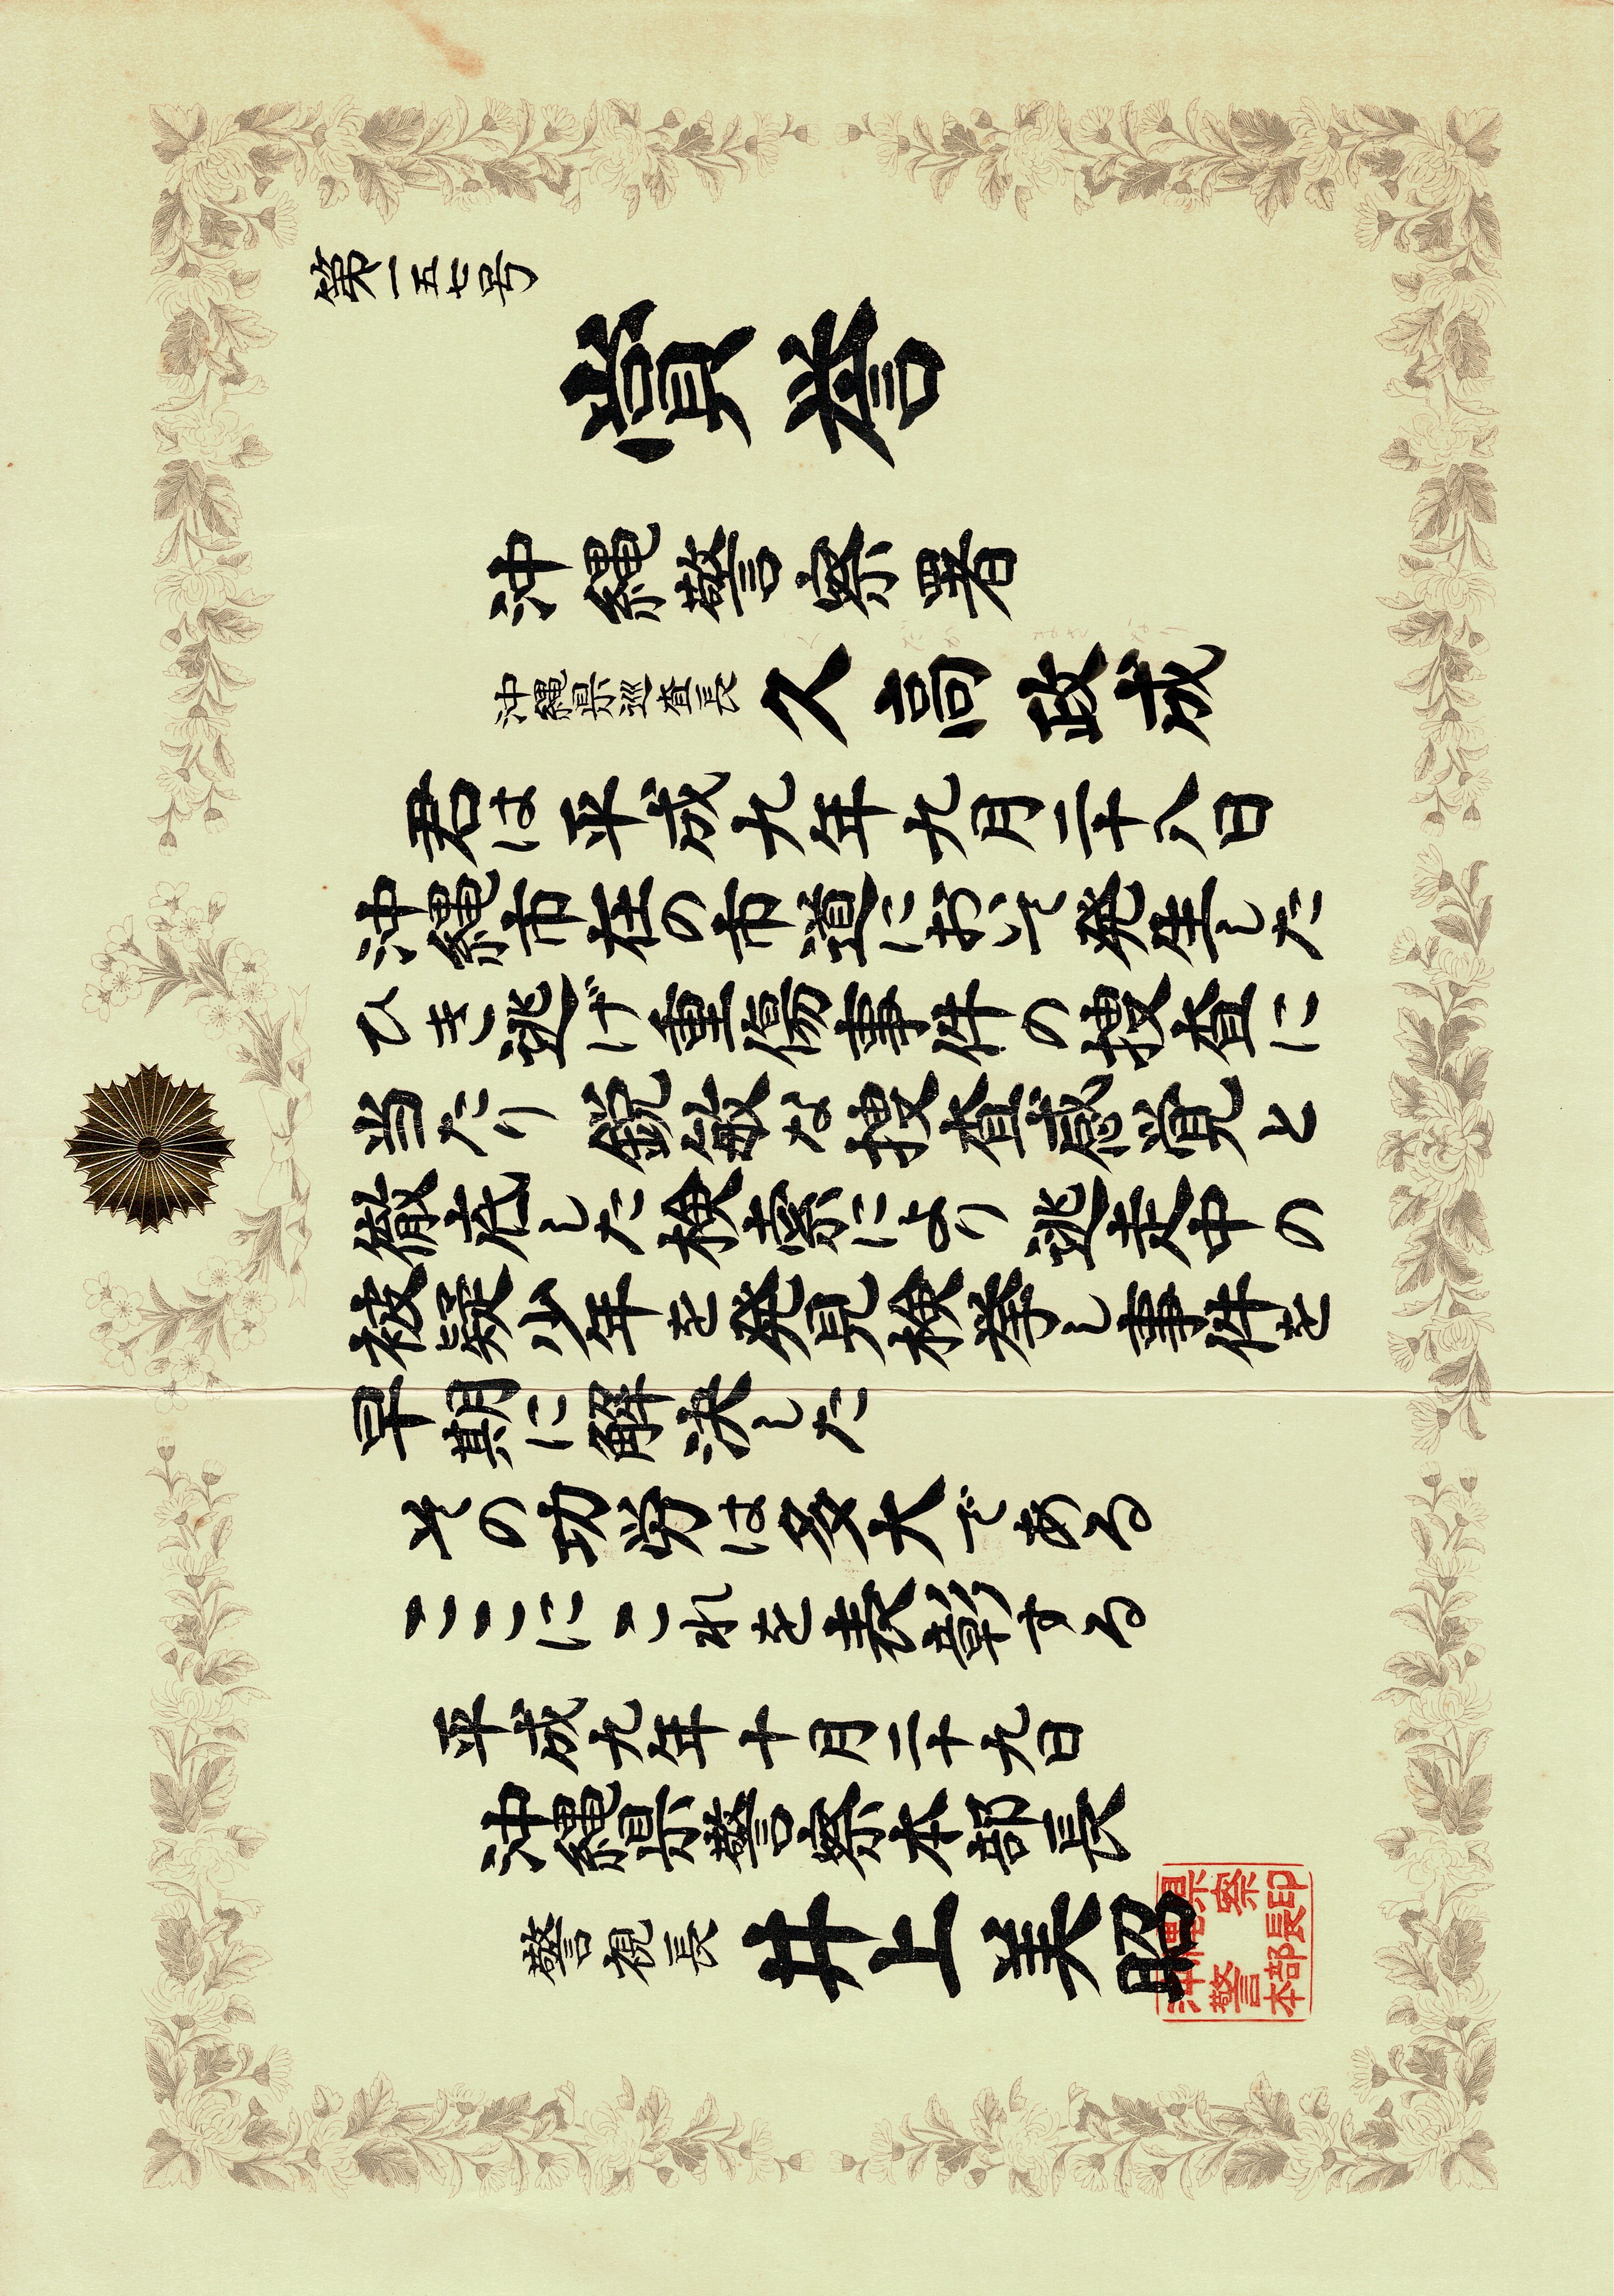 第一五七号
賞誉
沖縄警察署
沖縄県巡査長 久高政成
君は平成九年九月二十八日
沖縄市在の市道において発生した
ひき逃げ重傷事件の捜査に
当たり鋭敏な捜査感覚と
徹底した検索により逃走中の
被疑少年を発見検挙し事件を
早期に解決した
その功労は多大である
ここにこれを表彰する
平成九年十月二十九日
沖縄県警察本部長
警視長 井上美昭
沖縄県警察本部長印